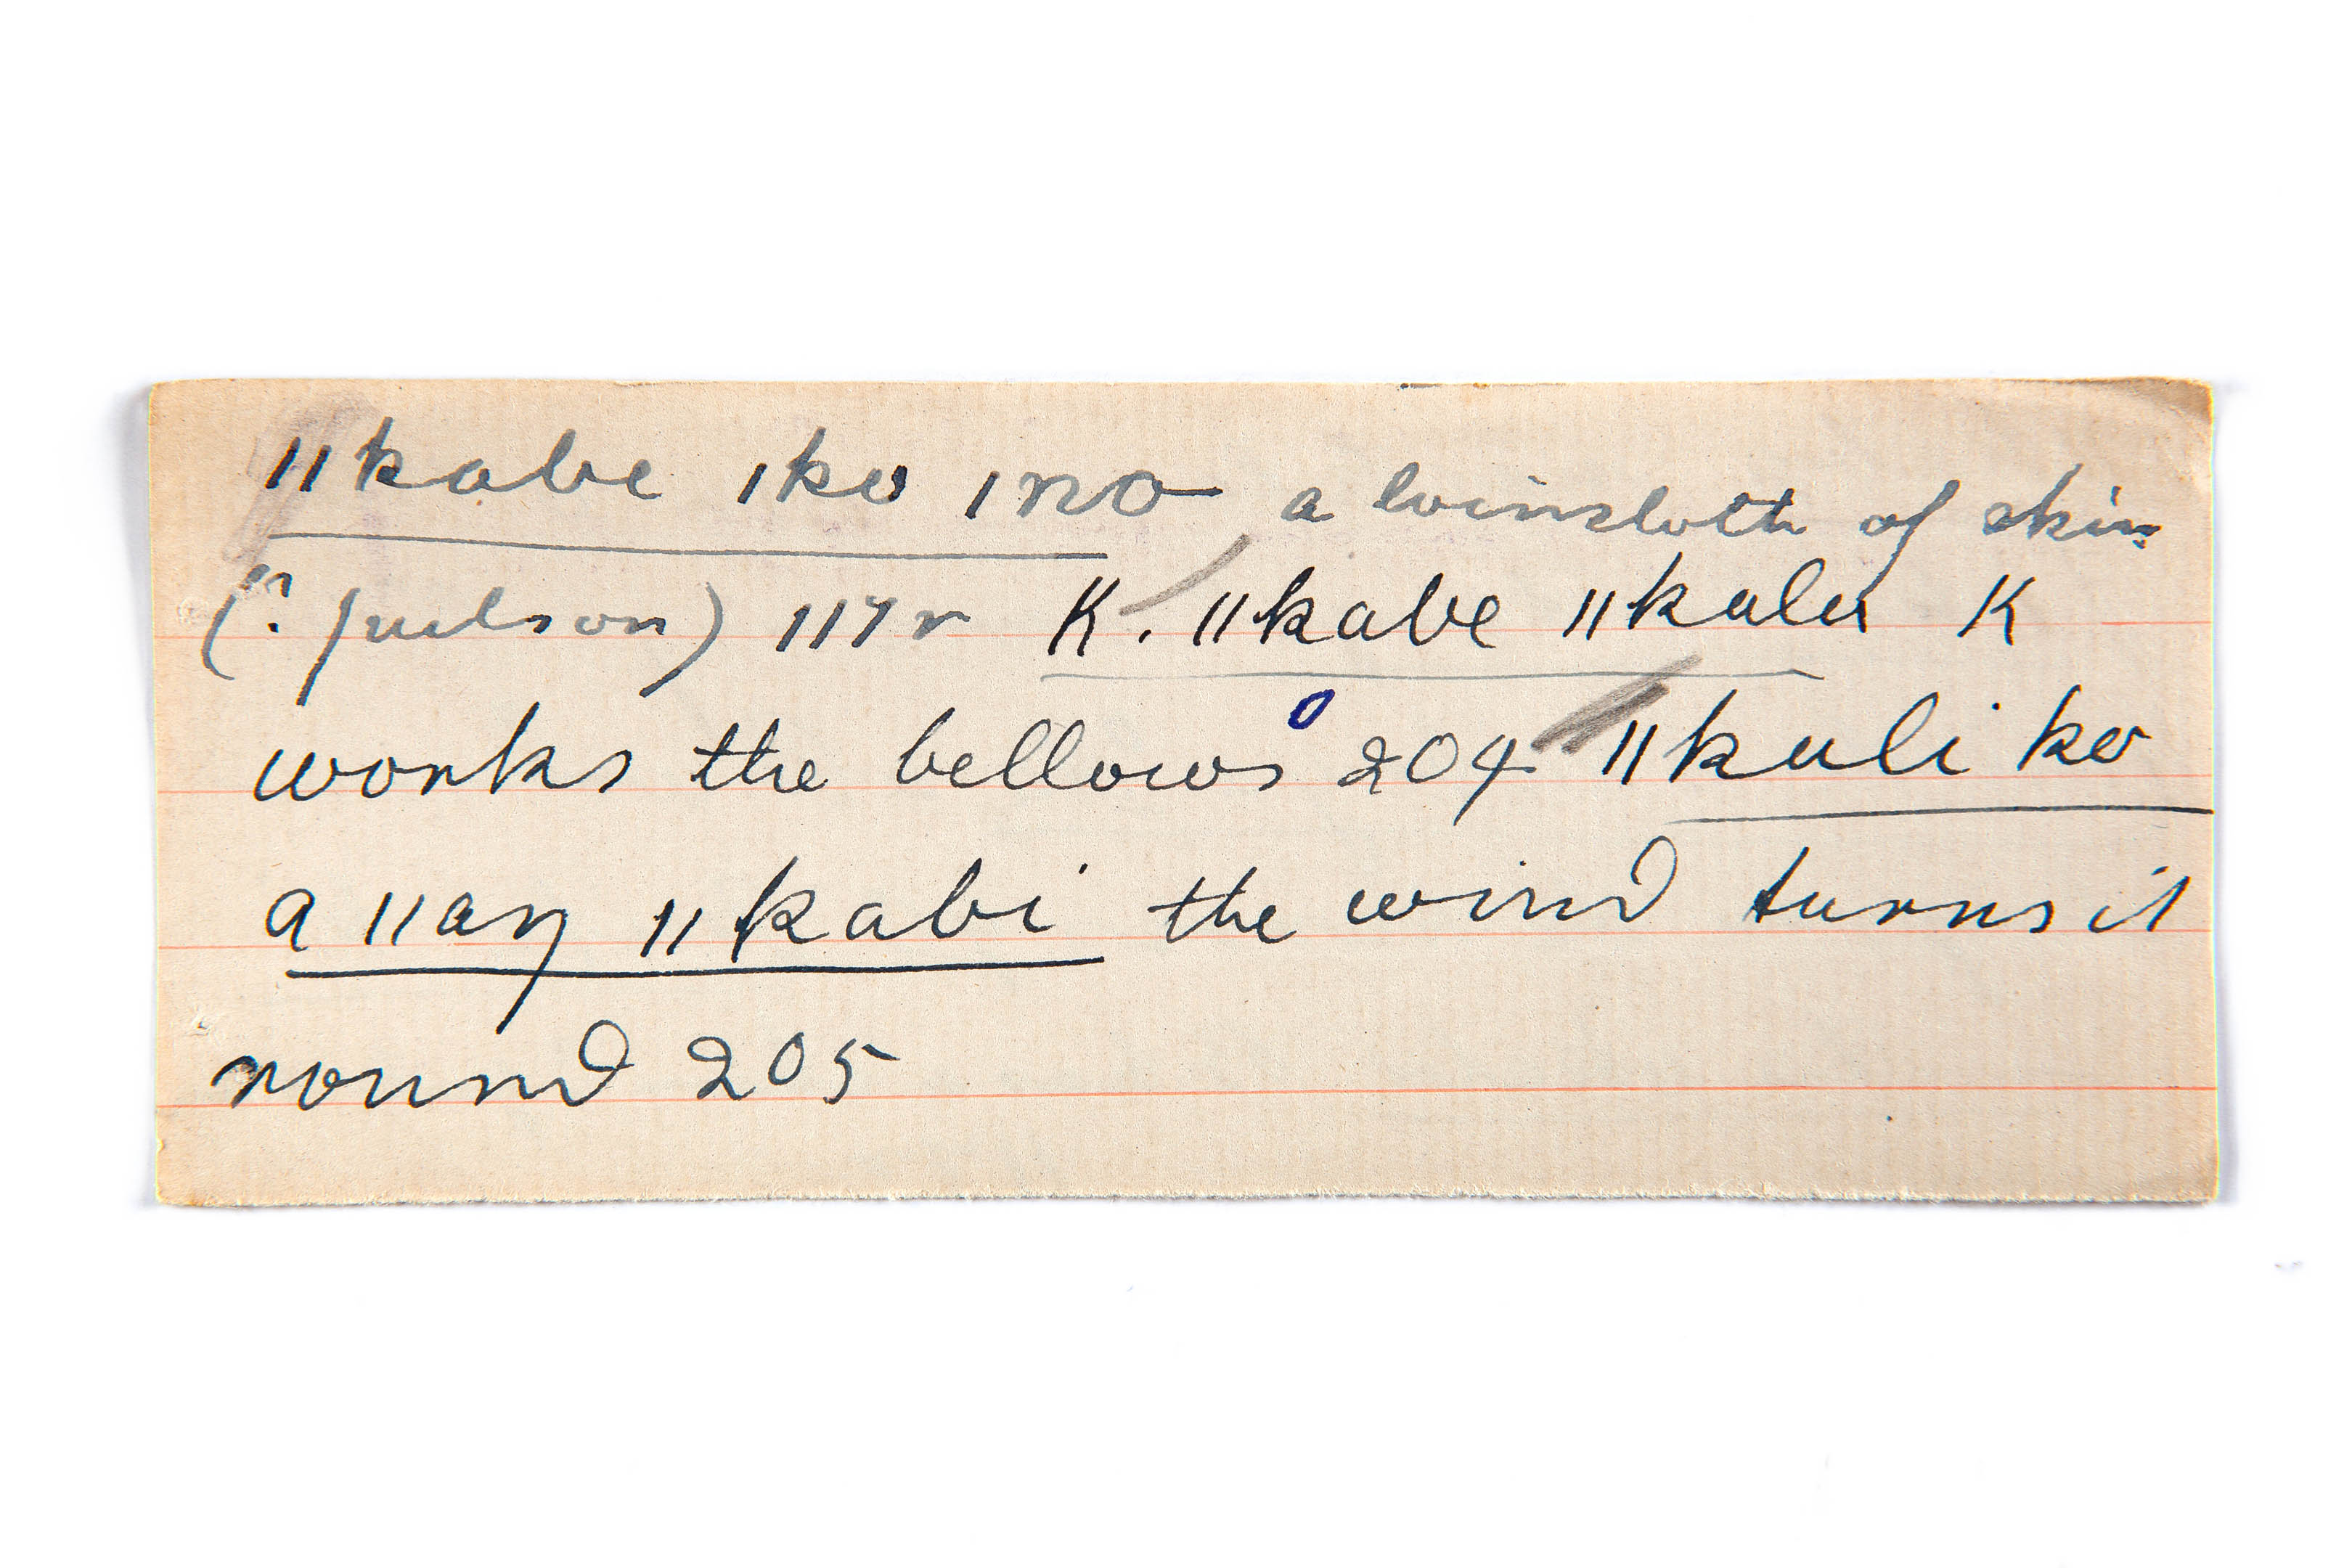 ǁkabe ǀko ǀno a loincloth of skin
(? judson) 117r K. ǁkabe ǁkalu K
works the bellows 204 ǁkuli ko
a ǁaŋ ǁkabi the wind turns it
round 205